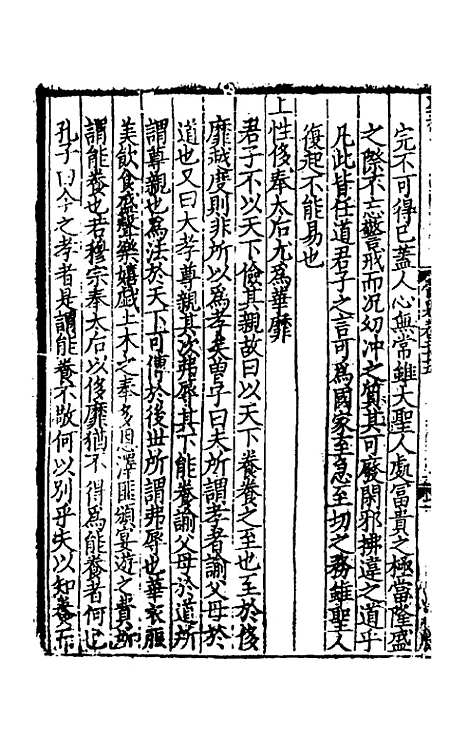 完不可得已蓋人心無常雖大聖人處富貴之極當隆盛
之際不忘警戒而況幼冲之質其可廢閑邪拂違之道乎
凡此皆任道君子之言可為國家至急至切之務雖聖人
復起不能易也
上性侈奉太后尤為華靡
君子不以天下儉其親故曰以天下養養之至也至於侈
靡越度則非所以為孝矣曽子曰夫所謂孝者諭父母於
道也又曰大孝尊親其次弗辱其下能養諭父母於道所
謂尊親也為法於天下可傳於後世所謂弗辱也華衣服
美飲食盛聲樂嬉戲土木之奉多恩澤匪頒宴遊之費
謂能養也若穆宗奉太后以侈靡猶不得為能養者何也
孔子曰今之孝者是謂能養不敬何以別乎夫以知養而